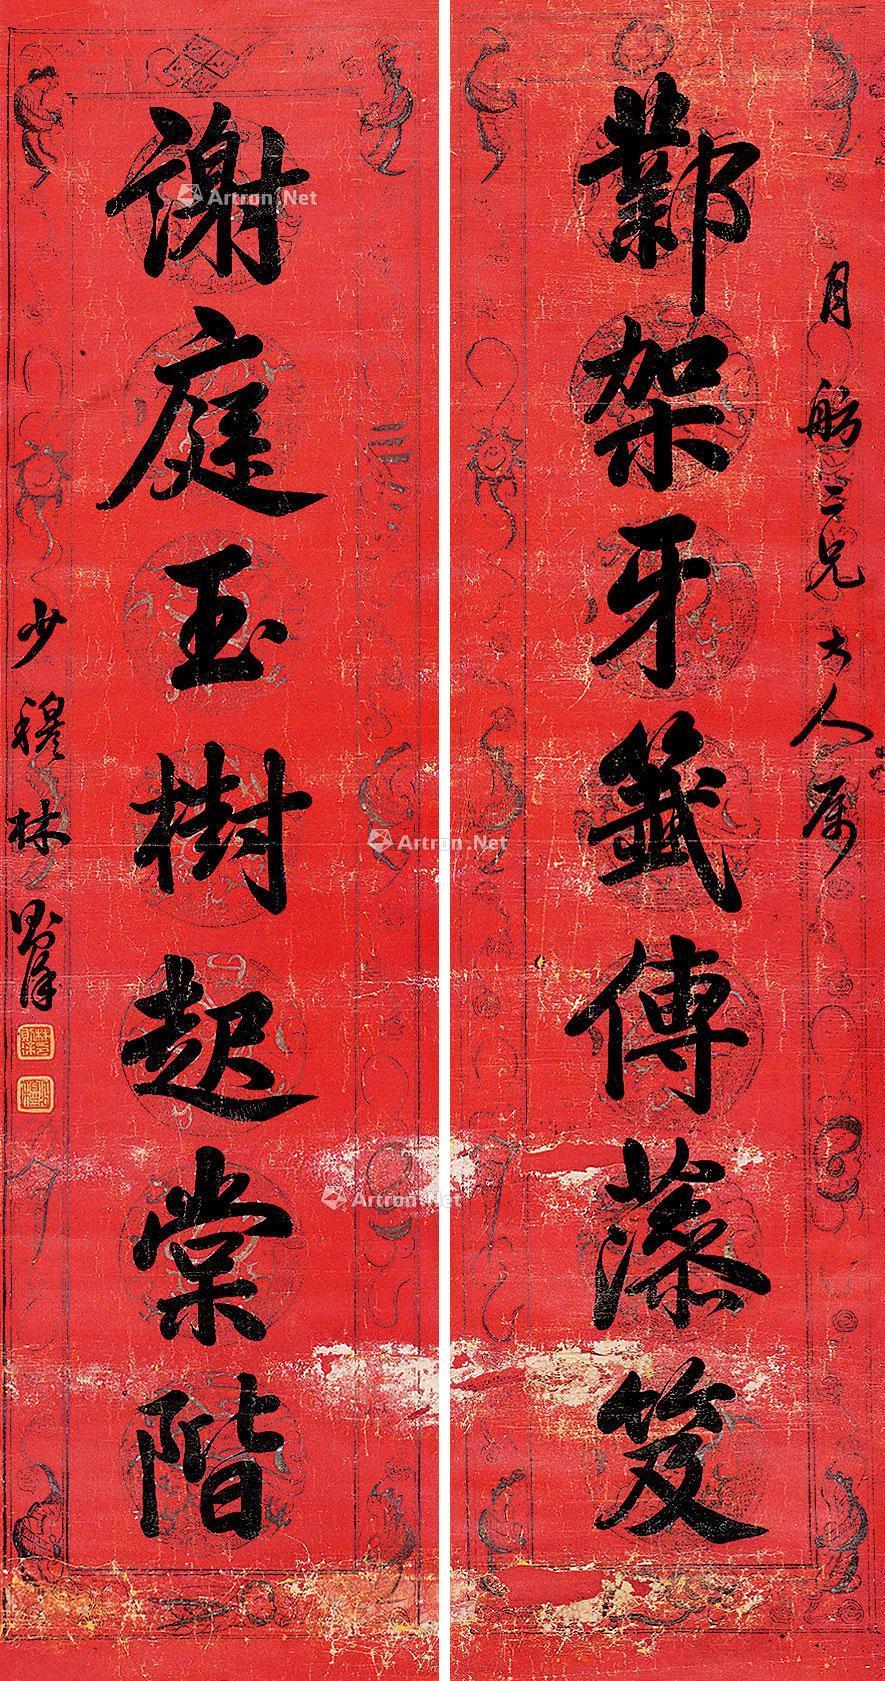 鄴架牙籤傳藻笈
月舫二兄大人属
謝庭玉樹起棠階
少穆林則徐
Artron.Net
Artron.Net
Artron.Net